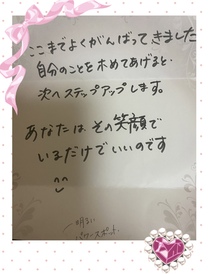 ここまでよくがんばってきました
自分のことをホめてあげると・
次へステップアップします。
あなたは その笑顔で
いるだけでいいのです
^^
明るい
パワースポット